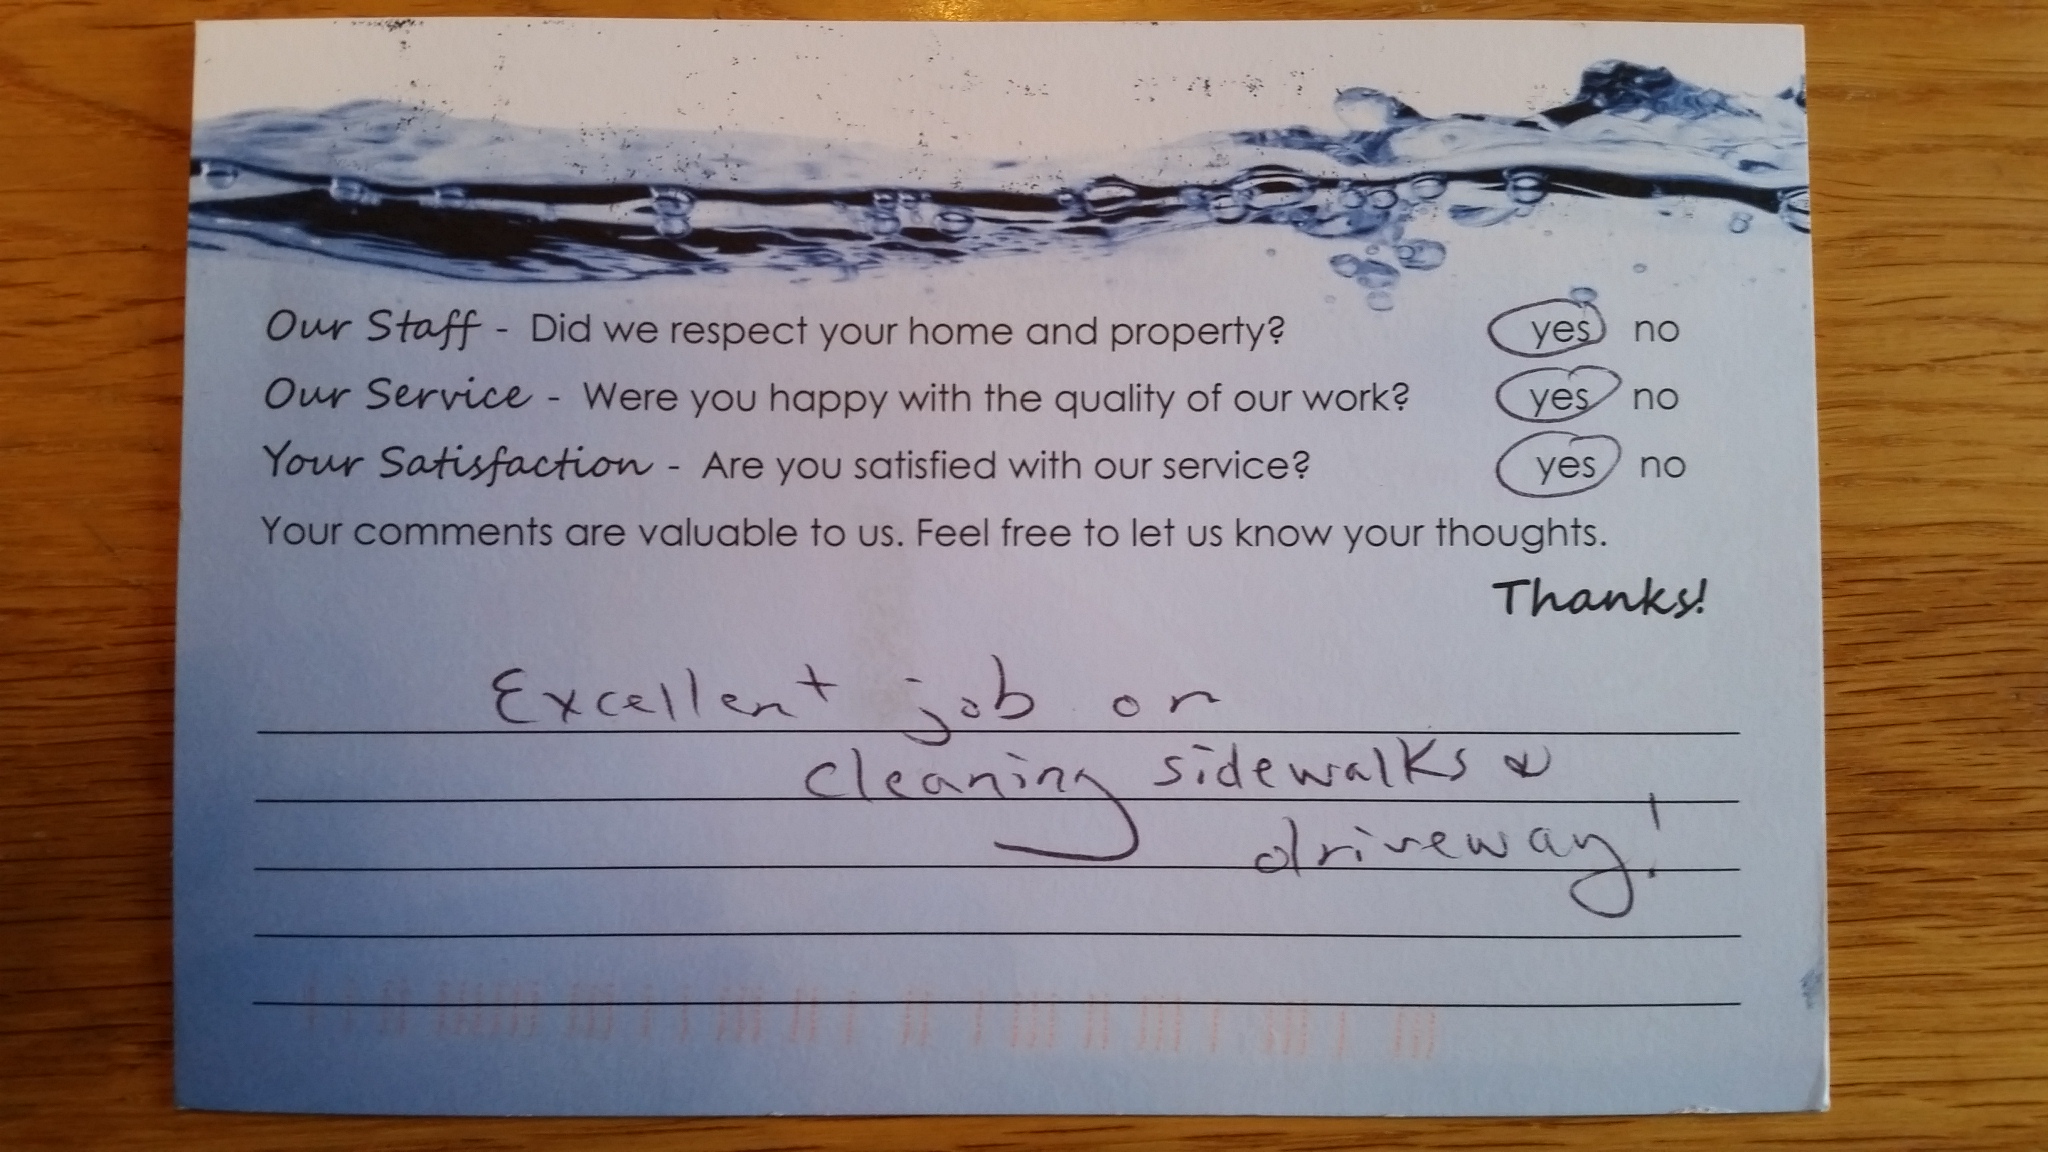 Our Staff - Did we respect your home and property? yes no
Our Service - Were you happy with the quality of our work? yes no
Your Satisfaction - Are you satisfied with our service? yes no
Your comments are valuable to us. Feel free to let us know your thoughts.
Thanks!
Excellent job on
cleaning sidewalks &
driveway!